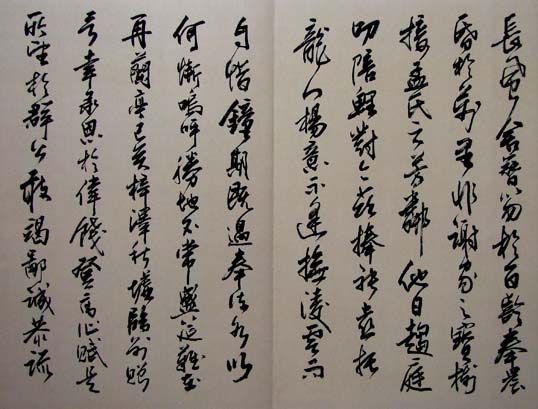 長風舍簪笏於百齡奉晨
昏於萬里非謝家之寶樹
接孟氏之芳鄰他日趨庭
叨陪鯉對今茲捧袂喜托
龍門楊意不逢撫凌雲而
自惜鐘期既遇奉流水以
何慚嗚呼勝地不常盛筵難
再蘭亭已矣梓澤丘墟臨別贈
言幸承恩於偉餞登高作賦是
所望於群公敢竭鄙誠恭疏